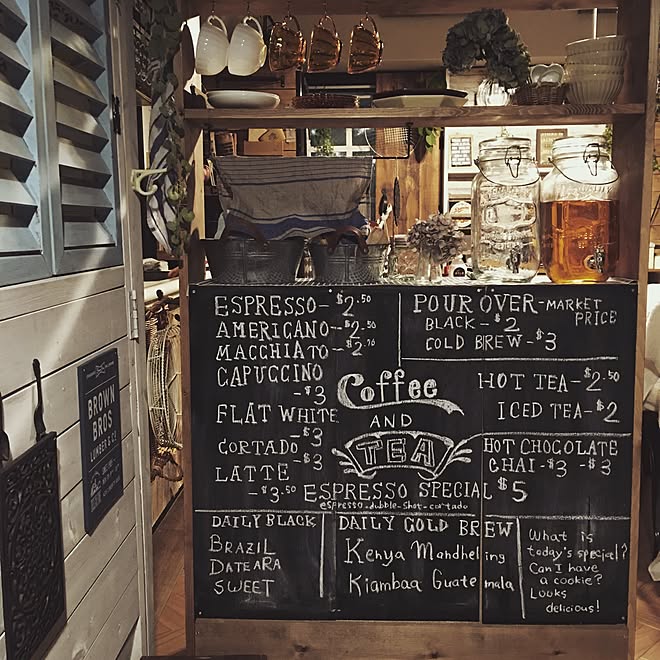 ESPRESSO-$2.50
AMERICANO-$2.50
MACCHIATO-$2.10
CAPUCCINO
-$3
FLAT WHITE
-$3
CORTADO
-$3
LATTE
-$3.50
POUR OVER-MARKET
PRICE
BLACK-$2
COLD BREW-$3
Coffee
AND
TEA
HOT TEA-$2.50
ICED TEA-$2
HOT CHOCOLATE
CHAI-$3 -$3
ESPRESSO SPECIAL $5
espresso-dubble-shot-cortado
DAILY BLACK
BRAZIL
DATEARA
SWEET
DAILY COLD BREW
Kenya Mandheling
Kiambaa Guatemala
What is
today's special?
Can I have
a cookie?
Looks
delicious!
BROWN
BROS
LUMBER & CO